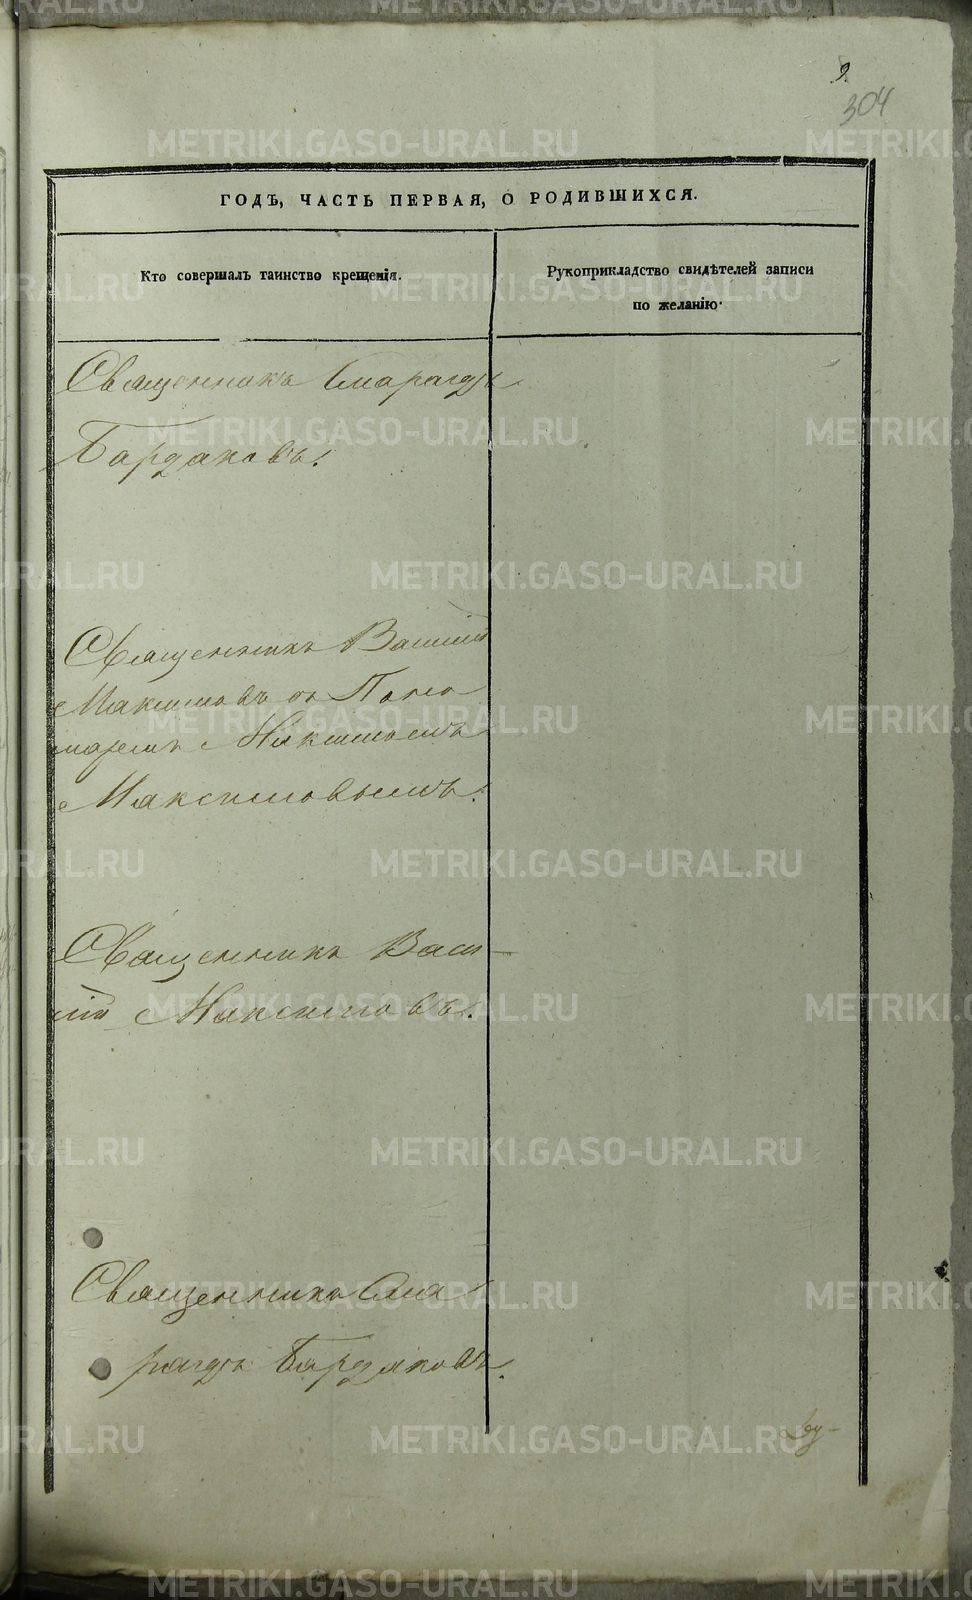 9.
304
ГОДЪ, ЧАСТЬ ПЕРВАЯ, О РОДИВШИХСЯ.
Кто совершалъ таинство крещенія.
Рукоприкладство свидѣтелей записи
по желанію.
Священникъ Смарагдъ
Бардаковъ.
Священникъ Василій
Максимовъ съ Поно
маремъ Максимомъ
Максимовымъ.
Священникъ Васи-
лій Максимовъ.
Священникъ Сма
рагдъ Бардаковъ.
METRIKI.GASO-URAL.RU